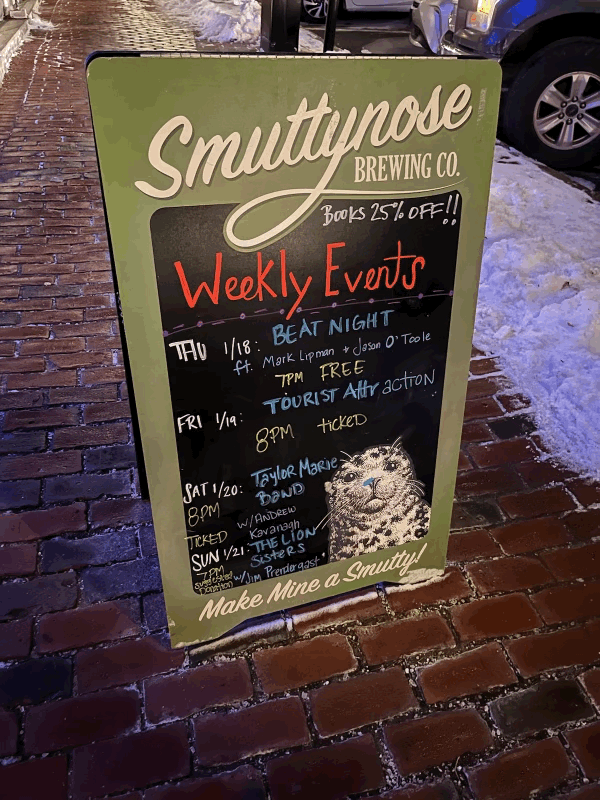 Smuttynose
BREWING CO.
BOOKS 25% OFF!!
Weekly Events
THU 1/18: BEAT NIGHT
ft. Mark Lipman + Jason O'Toole
7PM FREE
FRI 1/19: TOURIST Attraction
8PM ticked
SAT 1/20: Taylor Marie
8PM BAND
TICKED w/ANDREW
Kavanagh
SUN 1/21: THE LION
Sisters
7PM w/Jim Prendergast
suggested
Donation
Make Mine a Smutty!